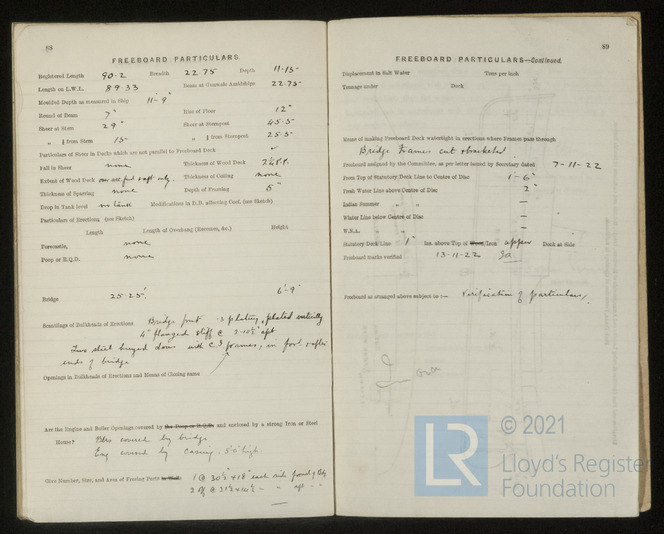 88
FREEBOARD PARTICULARS.
Registered Length 90·2 Breadth 22·75 Depth 11·15
Length on L.W.L. 89·33 Beam at Gunwale Amidships 22·75
Moulded Depth as measured in Ship 11'-9"
Round of Beam 7" Rise of Floor 12"
Sheer at Stem 29" Sheer at Sternpost 45·5
" from Stem 15· " from Sternpost 25·5
Particulars of Sheer in Decks which are not parallel to Freeboard Deck
Fall in Sheer none Thickness of Wood Deck 2¼ P.P.
Extent of Wood Deck aft only. Thickness of Ceiling none
Thickness of Sparring none Depth of Framing 5"
Drop in Tank level no tank Modifications in D.B. affecting Coef. (see Sketch)
Particulars of Erections (see Sketch)
Length Length of Overhang (Recesses, &c.) Height
Forecastle, none
Poop or R.Q.D. none
Bridge 25·25'. 6'-9"
Scantlings of Bulkheads of Erections Bridge front ·3 plating, plated vertically
4" flanged stiff @ 2'-10½" apt
Two steel hinged doors with C.I frames, in front & after
ends of bridge
Openings in Bulkheads of Erections and Means of Closing same
Are the Engine and Boiler Openings covered by the Poop or R.Q.D. and enclosed by a strong Iron or Steel
House? Blrs covered by bridge
Eng covered by Casing - 5'6" high
Give Number, Size, and Area of Freeing Ports in Well: 1 @ 30½ x 18" each side forward of Bdg
2 @ 31½ x 10½ " " aft " "
89
FREEBOARD PARTICULARS—Continued.
Displacement in Salt Water Tons per inch
Tonnage under Deck
Means of making Freeboard Deck watertight in erections where Frames pass through
Bridge Frames cut & bracketed
Freeboard assigned by the Committee, as per letter issued by Secretary dated 7-11-22
From Top of Statutory Deck Line to Centre of Disc 1'-6"
Fresh Water Line above Centre of Disc 2"
Indian Summer " " —
Winter Line below Centre of Disc —
W.N.A. " " —
Statutory Deck Line 1" ins. above Top of Wood/Iron upper Deck at Side
Freeboard marks verified 13-11-22
Freeboard as stamped above subject to :— Verification of particulars.
LR
© 2021
Lloyd's Register
Foundation